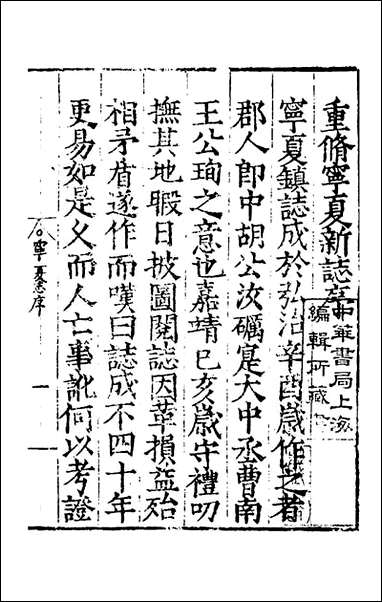 重脩寧夏新誌序
中華書局上海
編輯所藏
寧夏鎮誌成於弘治辛酉歲作之者
郡人郎中胡公汝礪寔大中丞曹南
王公珣之意也嘉靖己亥歲守禮叨
撫其地暇日披圖閱誌因革損益殆
相矛盾遂作而嘆曰誌成不四十年
更易如是乂而人亡事訛何以考證
寧夏志序
一